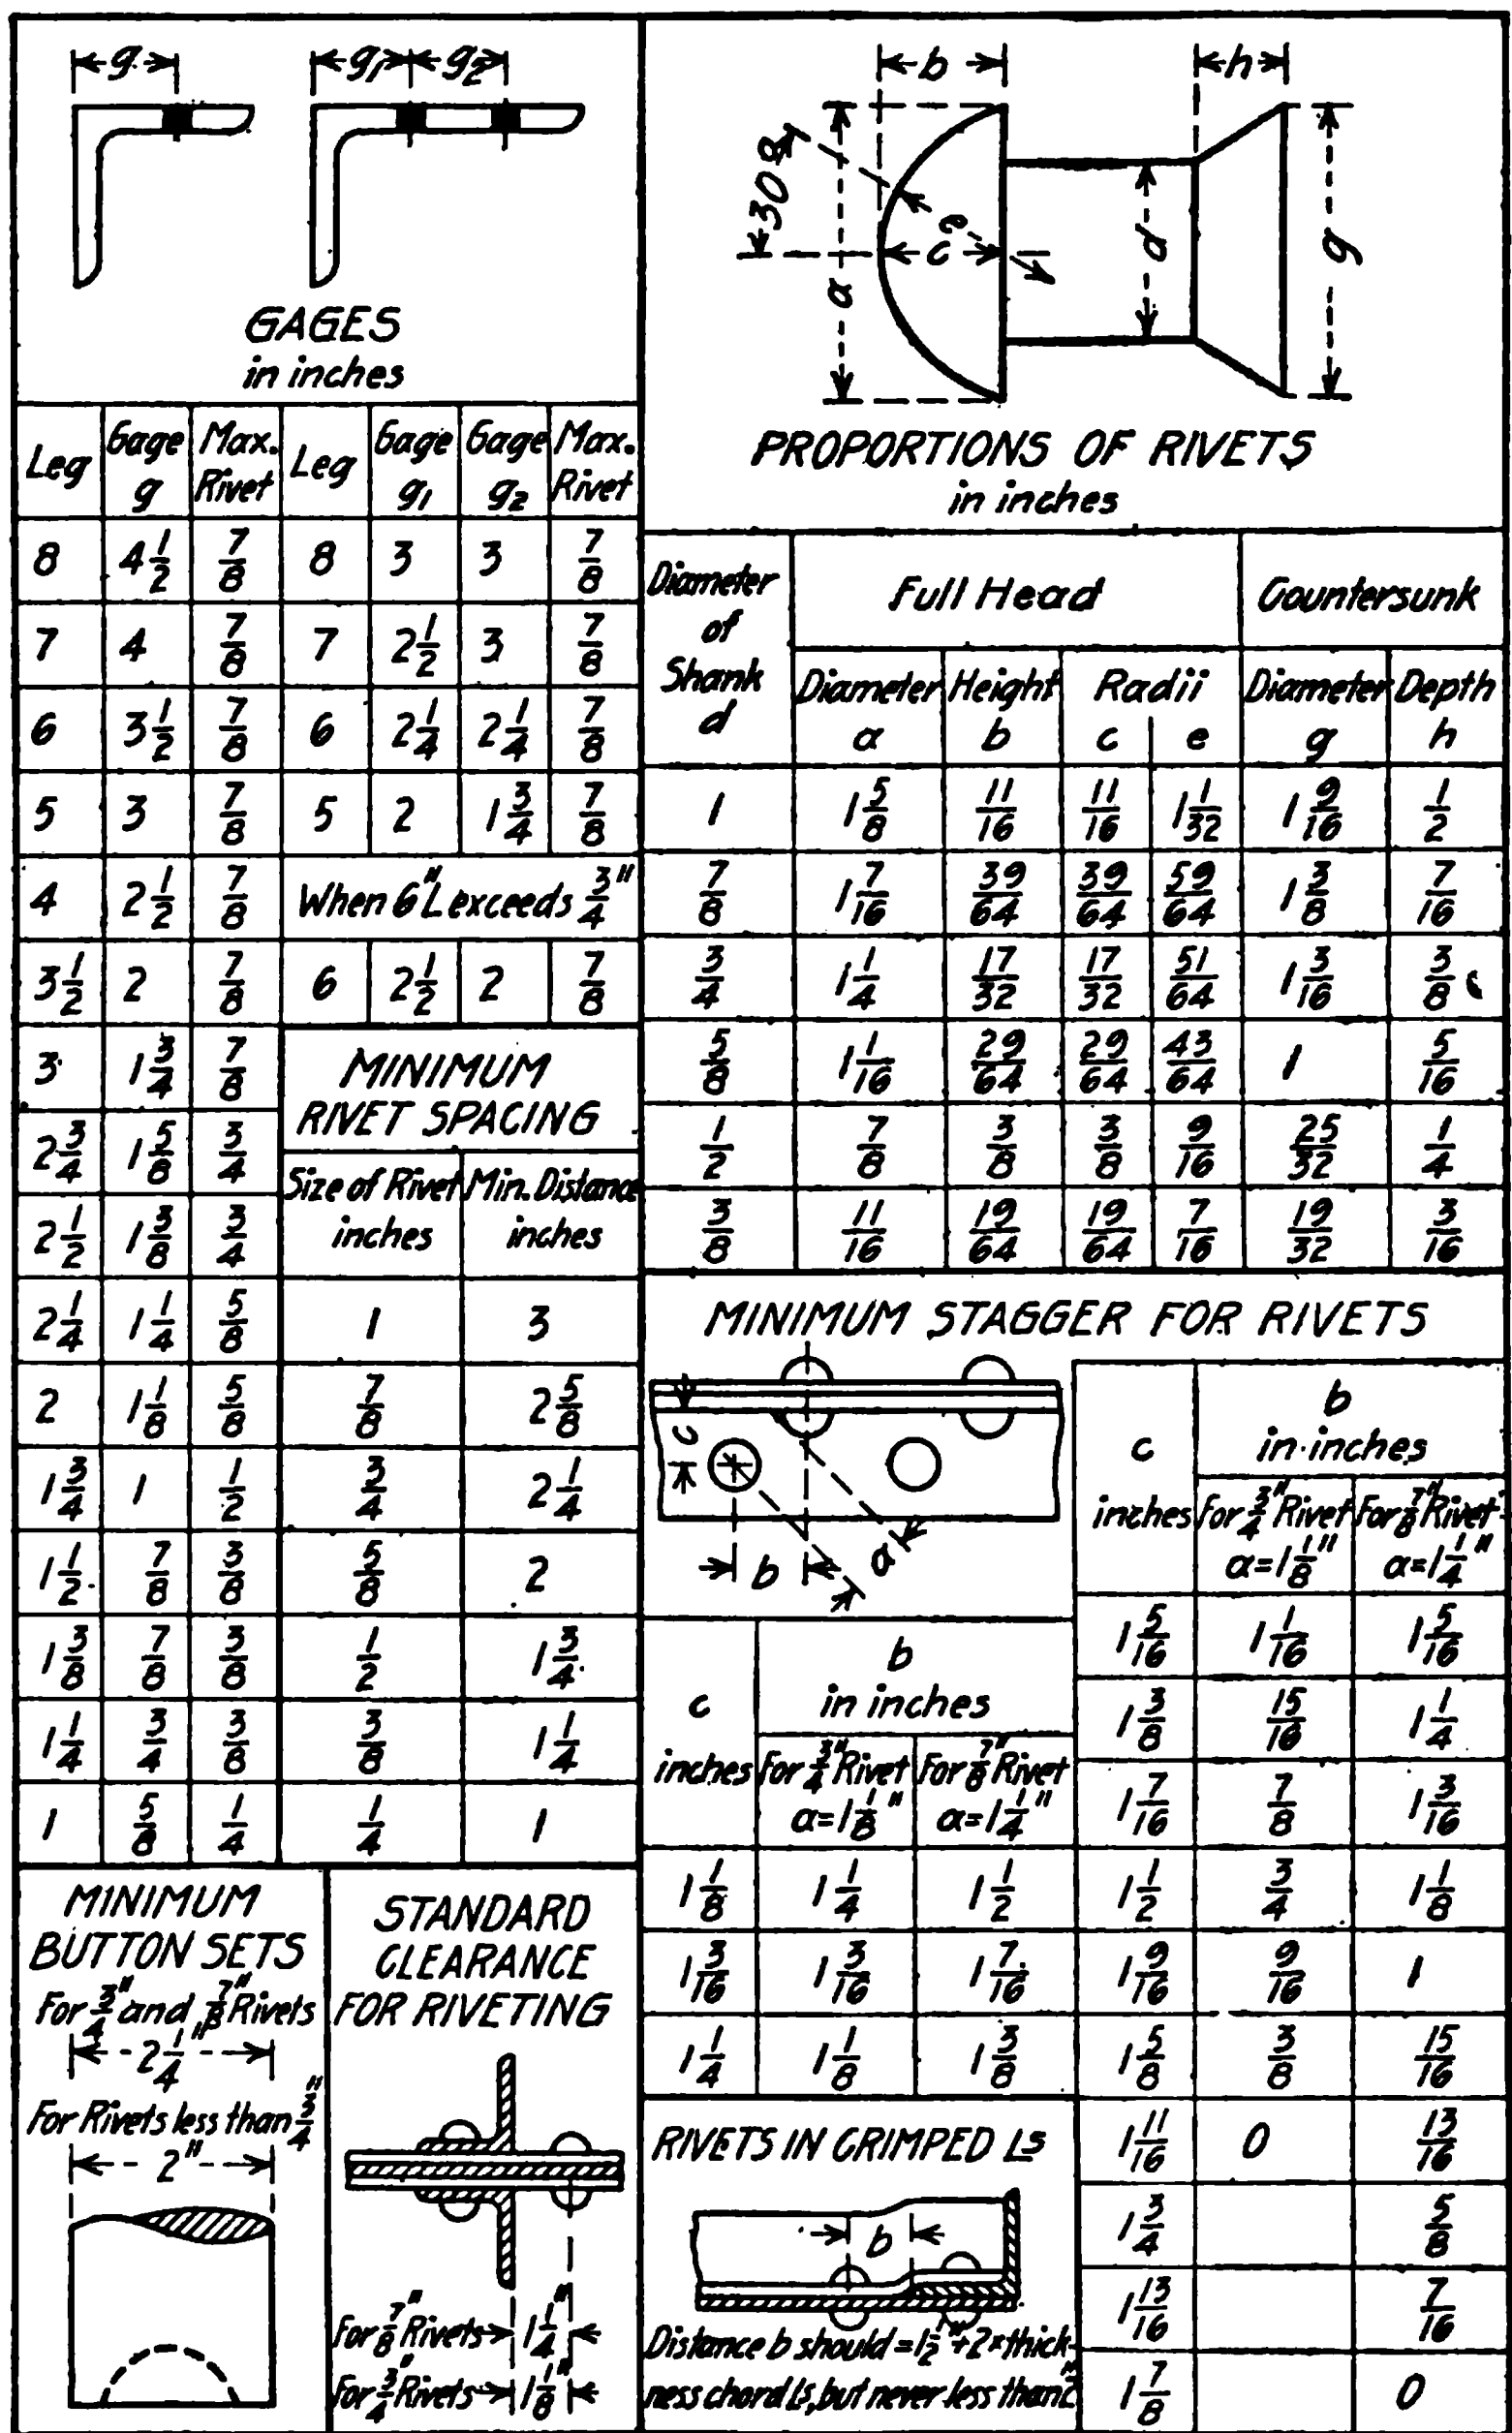 g g1 g2
GAGES
in inches
Leg | Gage g | Max. Rivet | Leg | Gage g1 | Gage g2 | Max. Rivet
8 | 4 1/2 | 7/8 | 8 | 3 | 3 | 7/8
7 | 4 | 7/8 | 7 | 2 1/2 | 3 | 7/8
6 | 3 1/2 | 7/8 | 6 | 2 1/4 | 2 1/4 | 7/8
5 | 3 | 7/8 | 5 | 2 | 1 3/4 | 7/8
4 | 2 1/2 | 7/8 | When 6" L exceeds 3/4"
3 1/2 | 2 | 7/8 | 6 | 2 1/2 | 2 | 7/8
3 | 1 3/4 | 7/8
2 3/4 | 1 5/8 | 3/4
2 1/2 | 1 3/8 | 3/4
2 1/4 | 1 1/4 | 5/8
2 | 1 1/8 | 5/8
1 3/4 | 1 | 1/2
1 1/2 | 7/8 | 3/8
1 3/8 | 7/8 | 3/8
1 1/4 | 3/4 | 3/8
1 | 5/8 | 1/4
MINIMUM
RIVET SPACING
Size of Rivet inches | Min. Distance inches
1 | 3
7/8 | 2 5/8
3/4 | 2 1/4
5/8 | 2
1/2 | 1 3/4
3/8 | 1 1/4
1/4 | 1
MINIMUM
BUTTON SETS
For 3/4" and 7/8" Rivets
2 1/4"
For Rivets less than 3/4"
2"
STANDARD
CLEARANCE
FOR RIVETING
For 7/8" Rivets 1 1/4"
For 3/4" Rivets 1 1/8"
b h
30
a c e d g
PROPORTIONS OF RIVETS
in inches
Diameter of Shank d | Full Head | Countersunk
Diameter a | Height b | Radii c | e | Diameter g | Depth h
1 | 1 5/8 | 11/16 | 11/16 | 1 1/32 | 1 9/16 | 1/2
7/8 | 1 7/16 | 39/64 | 39/64 | 59/64 | 1 3/8 | 7/16
3/4 | 1 1/4 | 17/32 | 17/32 | 51/64 | 1 3/16 | 3/8
5/8 | 1 1/16 | 29/64 | 29/64 | 43/64 | 1 | 5/16
1/2 | 7/8 | 3/8 | 3/8 | 9/16 | 25/32 | 1/4
3/8 | 11/16 | 19/64 | 19/64 | 7/16 | 19/32 | 3/16
MINIMUM STAGGER FOR RIVETS
c
b a
c inches | b in inches
For 3/4" Rivet a=1 1/8" | For 7/8" Rivet a=1 1/4"
1 1/8 | 1 1/4 | 1 1/2
1 3/16 | 1 3/16 | 1 7/16
1 1/4 | 1 1/8 | 1 3/8
c inches | b in inches
For 3/4" Rivet a=1 1/8" | For 7/8" Rivet a=1 1/4"
1 5/16 | 1 1/16 | 1 5/16
1 3/8 | 15/16 | 1 1/4
1 7/16 | 7/8 | 1 3/16
1 1/2 | 3/4 | 1 1/8
1 9/16 | 9/16 | 1
1 5/8 | 3/8 | 15/16
1 11/16 | 0 | 13/16
1 3/4 | | 5/8
1 13/16 | | 7/16
1 7/8 | | 0
RIVETS IN CRIMPED Ls
b
Distance b should = 1 1/2" + 2 × thick-
ness chord Ls, but never less than 2"